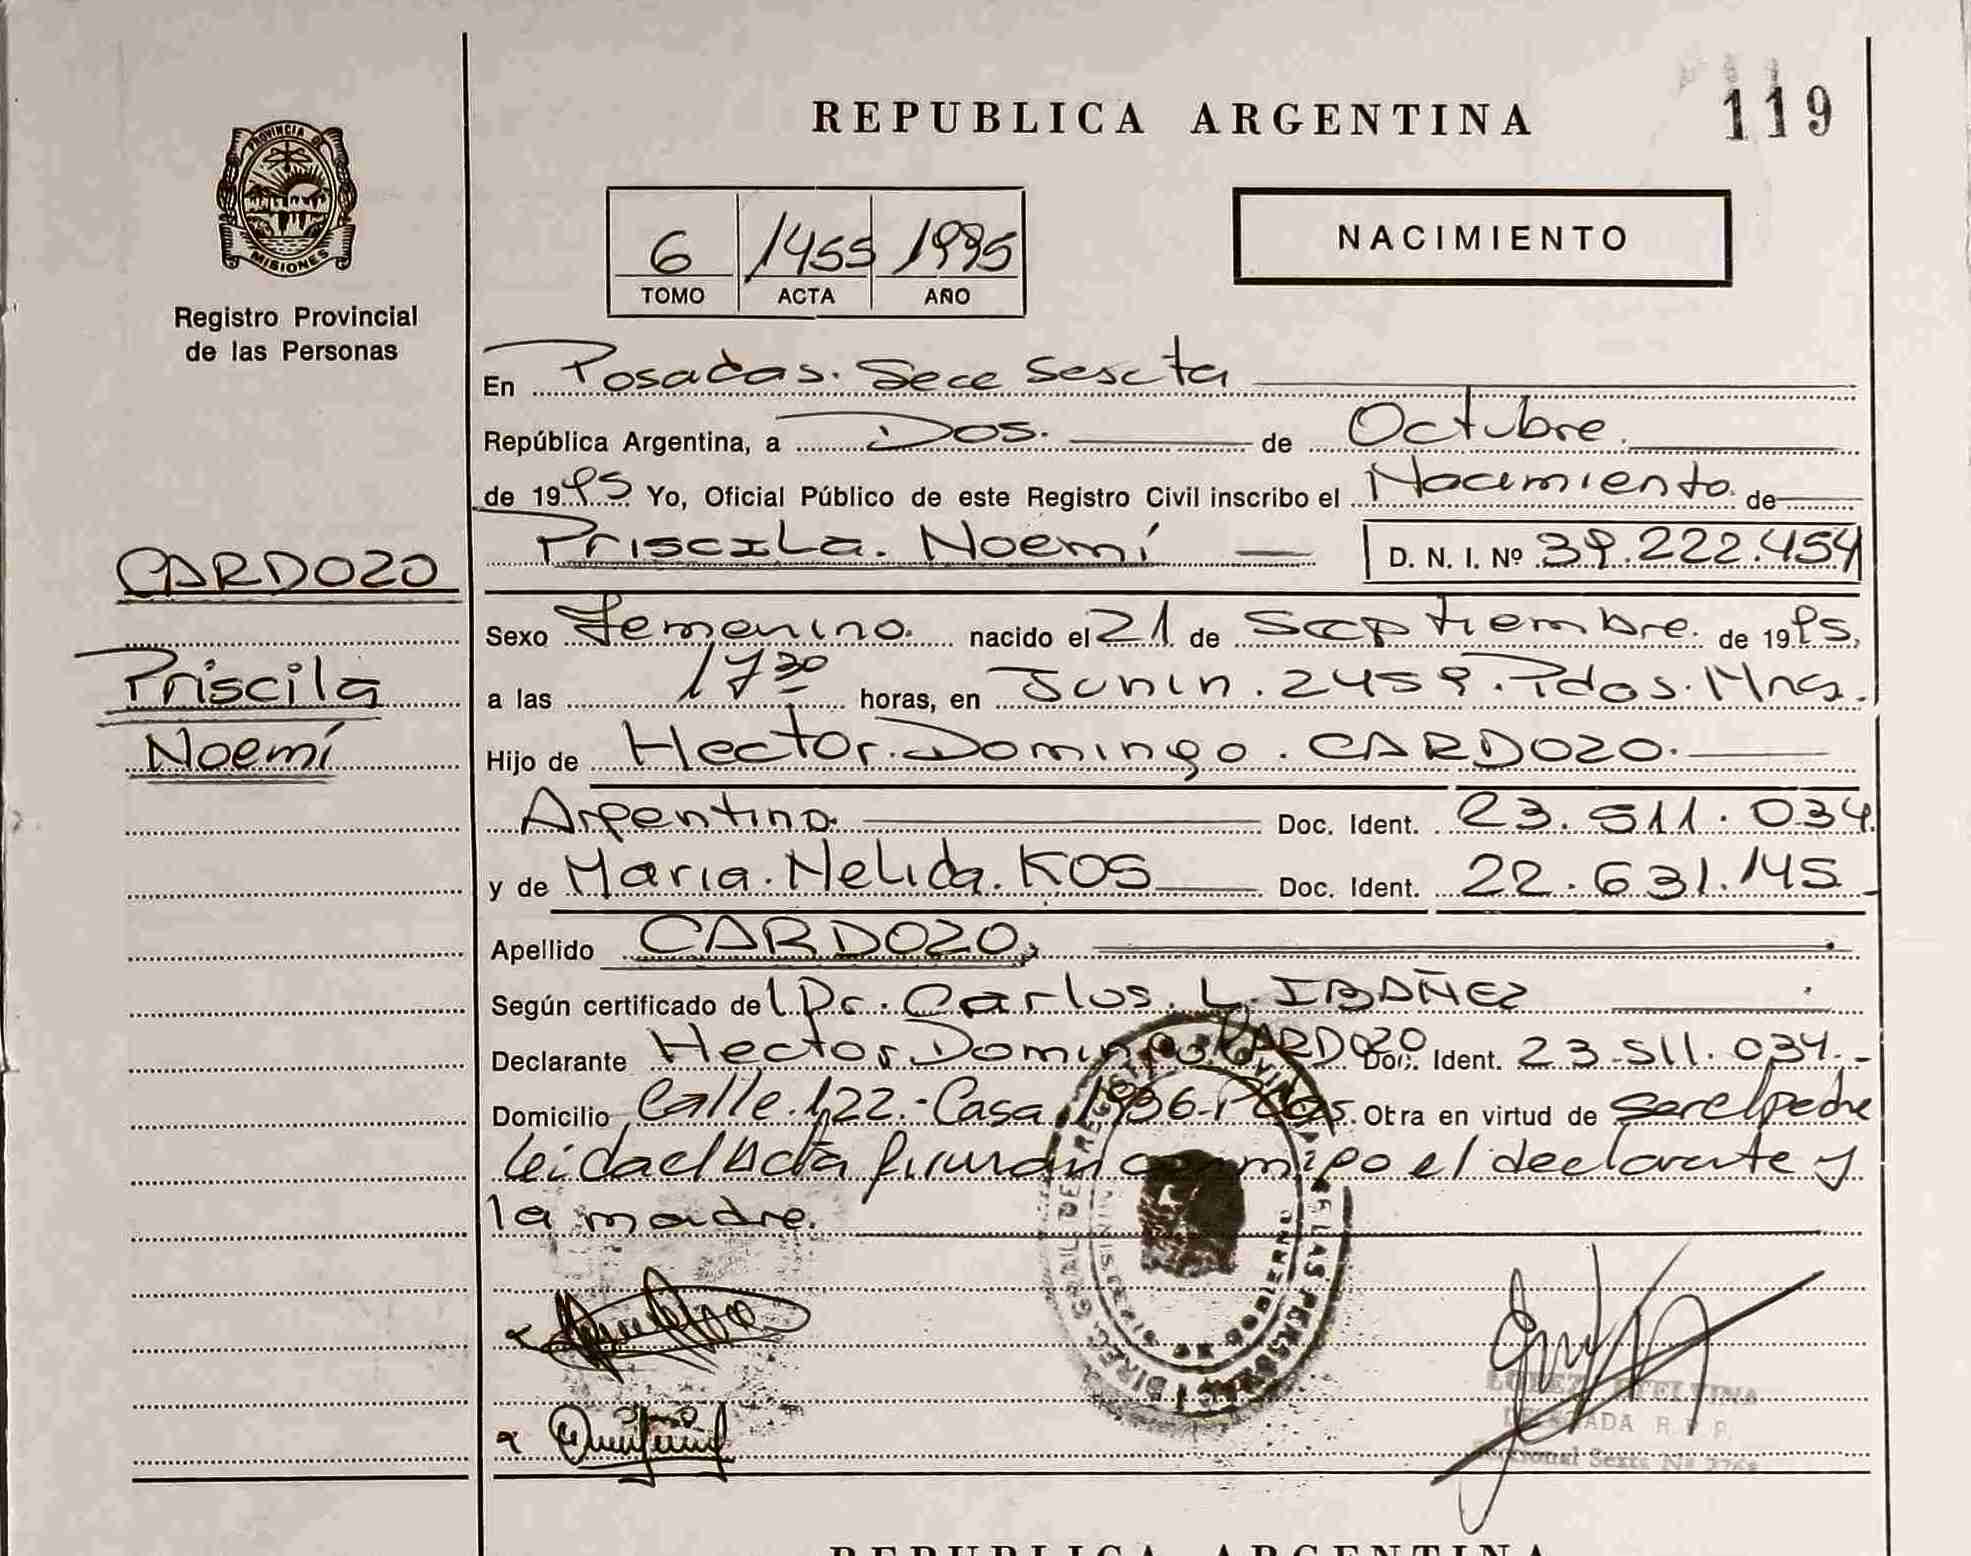 REPUBLICA ARGENTINA
119
PROVINCIA DE
MISIONES
Registro Provincial
de las Personas
6 1455 1995
TOMO ACTA AÑO
NACIMIENTO
En Posadas. Secc Sescta
República Argentina, a Dos. de Octubre.
de 1995 Yo, Oficial Público de este Registro Civil inscribo el Nacimiento. de
CARDOZO
Priscila. Noemí D. N. I. Nº 39.222.454
Sexo Femenino. nacido el 21 de Septiembre. de 1995,
Priscila
a las 17 30 horas, en Junin. 2459. Pdas. Mnes.
Noemí
Hijo de Hector. Domingo. CARDOZO.
Argentino. Doc. Ident. 23.511.034.
y de Maria. Nelida. KOS Doc. Ident. 22.631.145
Apellido CARDOZO,
Según certificado del Dr. Carlos. L. IBAÑEZ
Declarante Hector Domingo CARDOZO Doc. Ident. 23.511.034.-
Domicilio Calle.122.-Casa.1936-Pdas. Otra en virtud de ser el padre
leida el Acta firman conmigo el declarante y
la madre.
LOPEZ ETELVINA
DELEGADA R. P. P.
Seccional Sexta Nº
REPUBLICA ARGENTINA